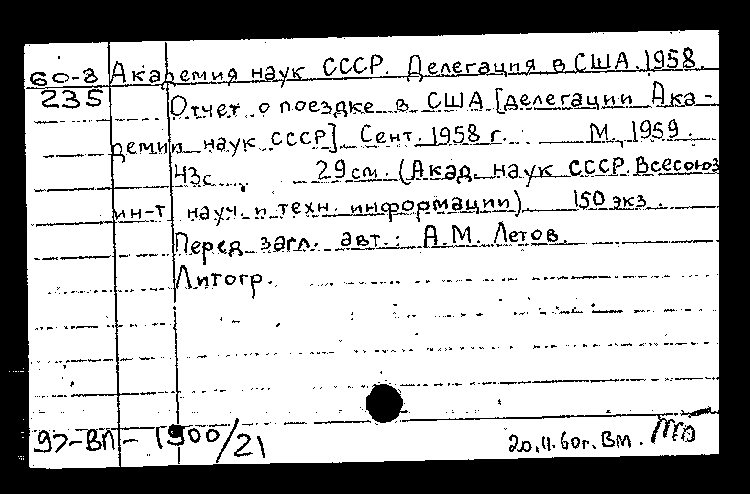 60-3 Академия наук СССР. Делегация в США. 1958.
235 Отчет о поездке в США [делегации Ака-
демии наук СССР] Сент. 1958 г. М., 1959.
43 с. 29 см. (Акад. наук СССР. Всесоюз
ин-т науч. и техн. информации) 150 экз.
Перед загл. авт.: А.М. Летов.
Литогр.
97-ВП-1900/21
20.11.60г. Вм.